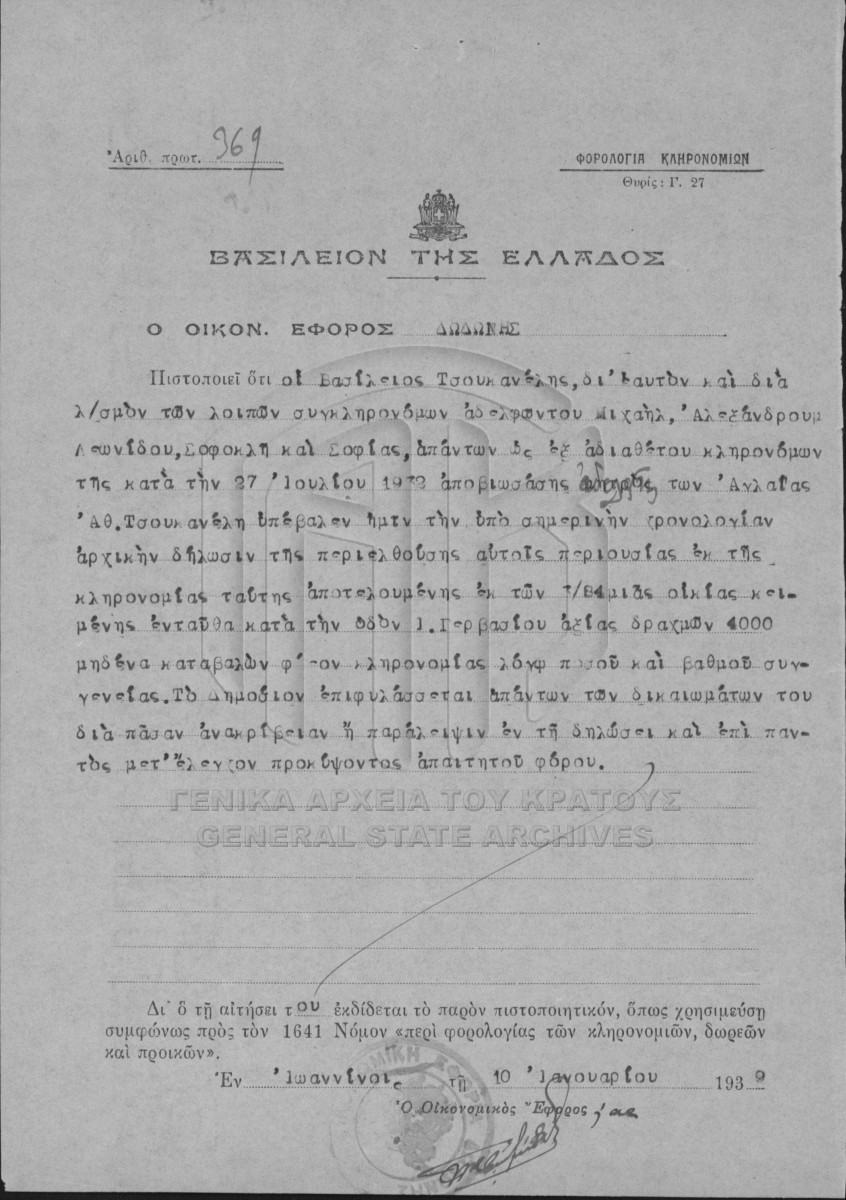 Ἀριθ. πρωτ. 969
ΦΟΡΟΛΟΓΙΑ ΚΛΗΡΟΝΟΜΙΩΝ
Θυρίς: Γ. 27
ΒΑΣΙΛΕΙΟΝ ΤΗΣ ΕΛΛΑΔΟΣ
Ο ΟΙΚΟΝ. ΕΦΟΡΟΣ ΔΩΔΩΝΗΣ
Πιστοποιεῖ ὅτι οἱ Βασίλειος Τσουκανέλης, δι' ἑαυτὸν καὶ διὰ
λ/σμὸν τῶν λοιπῶν συγκληρονόμων ἀδελφῶντου Μιχαὴλ, Ἀλεξάνδρουμ
Λεωνίδου, Σοφοκλῆ καὶ Σοφίας, ἁπάντων ὡς ἐξ ἀδιαθέτου κληρονόμων
τῆς κατὰ τὴν 27 Ἰουλίου 1932 ἀποβιωσάσης ἀδελφῆς των Ἀγλαΐας
Ἀθ. Τσουκανέλη ὑπέβαλεν ἡμῖν τὴν ὑπὸ σημερινὴν χρονολογίαν
ἀρχικὴν δήλωσιν τῆς περιελθούσης αὐτοῖς περιουσίας ἐκ τῆς
κληρονομίας ταύτης ἀποτελουμένης ἐκ τῶν 7/84 μιᾶς οἰκίας κει-
μένης ἐνταῦθα κατὰ τὴν ὁδὸν Ι. Γερβασίου ἀξίας δραχμῶν 4000
μηδένα καταβαλὼν φόρον κληρονομίας λόγῳ ποσοῦ καὶ βαθμοῦ συγ-
γενείας. Τὸ Δημόσιον ἐπιφυλάσσεται ἁπάντων τῶν δικαιωμάτων του
διὰ πᾶσαν ἀνακρίβειαν ἢ παράλειψιν ἐν τῇ δηλώσει καὶ ἐπὶ παν-
τὸς μετ' ἔλεγχον προκύψοντος ἀπαιτητοῦ φόρου.
ΓΕΝΙΚΑ ΑΡΧΕΙΑ ΤΟΥ ΚΡΑΤΟΥΣ
GENERAL STATE ARCHIVES
Δι' ὃ τῇ αἰτήσει του ἐκδίδεται τὸ παρὸν πιστοποιητικόν, ὅπως χρησιμεύσῃ
συμφώνως πρὸς τὸν 1641 Νόμον «περὶ φορολογίας τῶν κληρονομιῶν, δωρεῶν
καὶ προικῶν».
Ἐν Ἰωαννίνοις τῇ 10 Ἰανουαρίου 1939
Ὁ Οἰκονομικὸς Ἔφορος